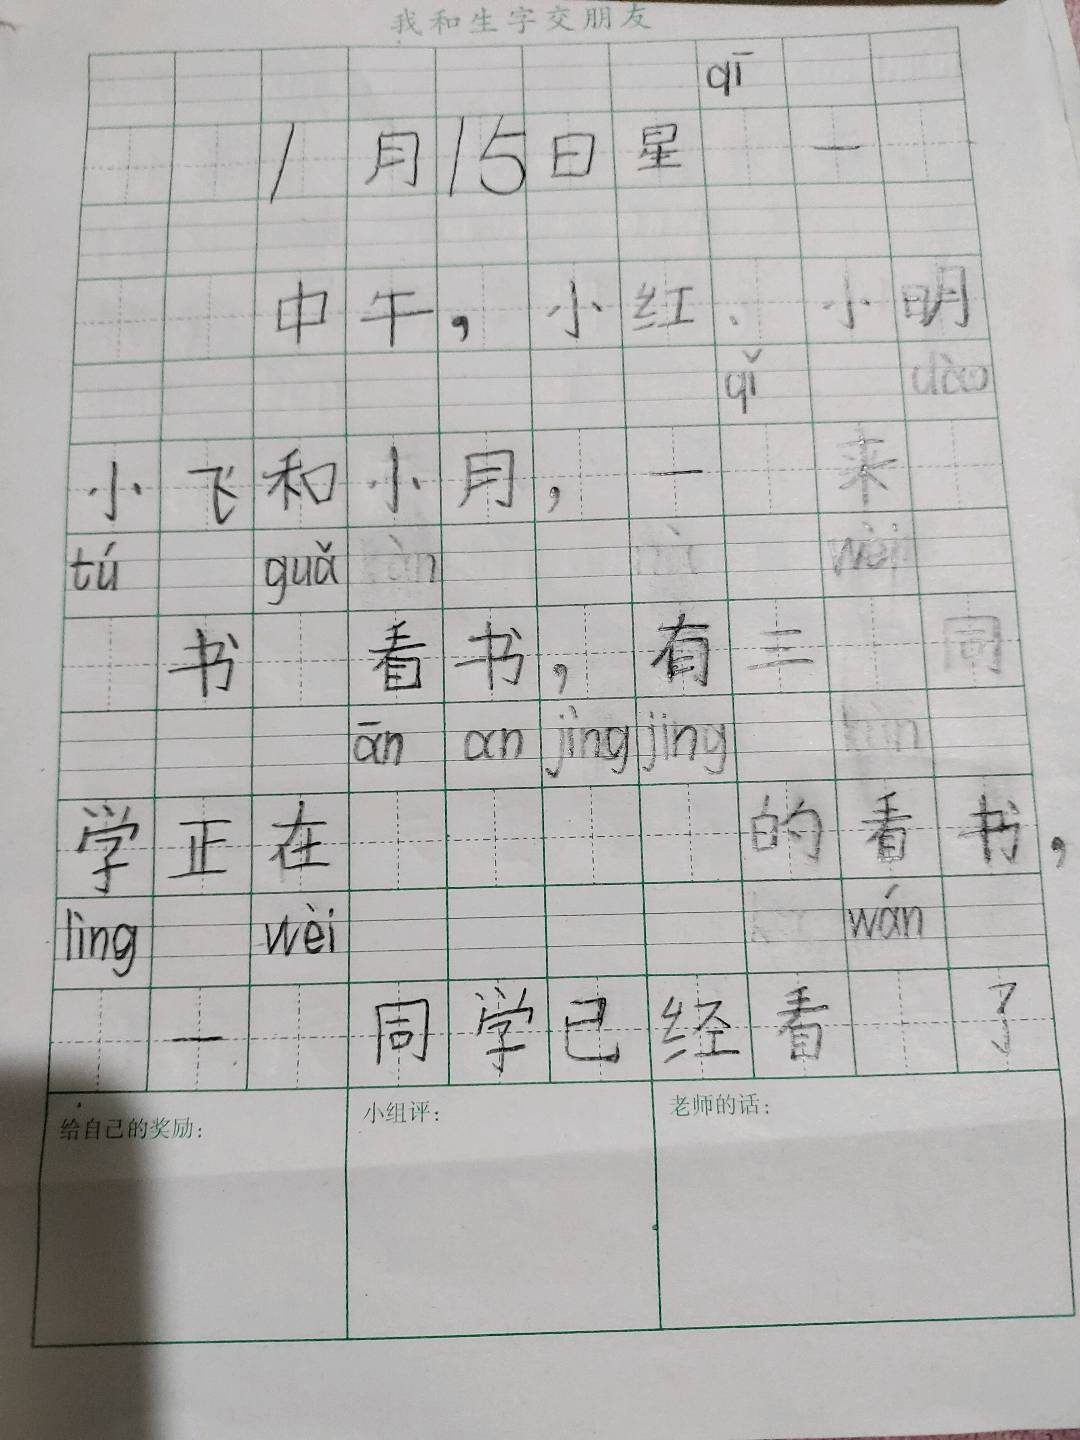 我和生字交朋友
qī
1月15日星 一
中午，小红、小明
qǐ dào
小飞和小月，一 来
tú guǎ wèi
书 看书，有三 同
ān an jìng jing
学正在 的看书，
lìng wèi wán
一 同学已经看 了
给自己的奖励： 小组评： 老师的话：